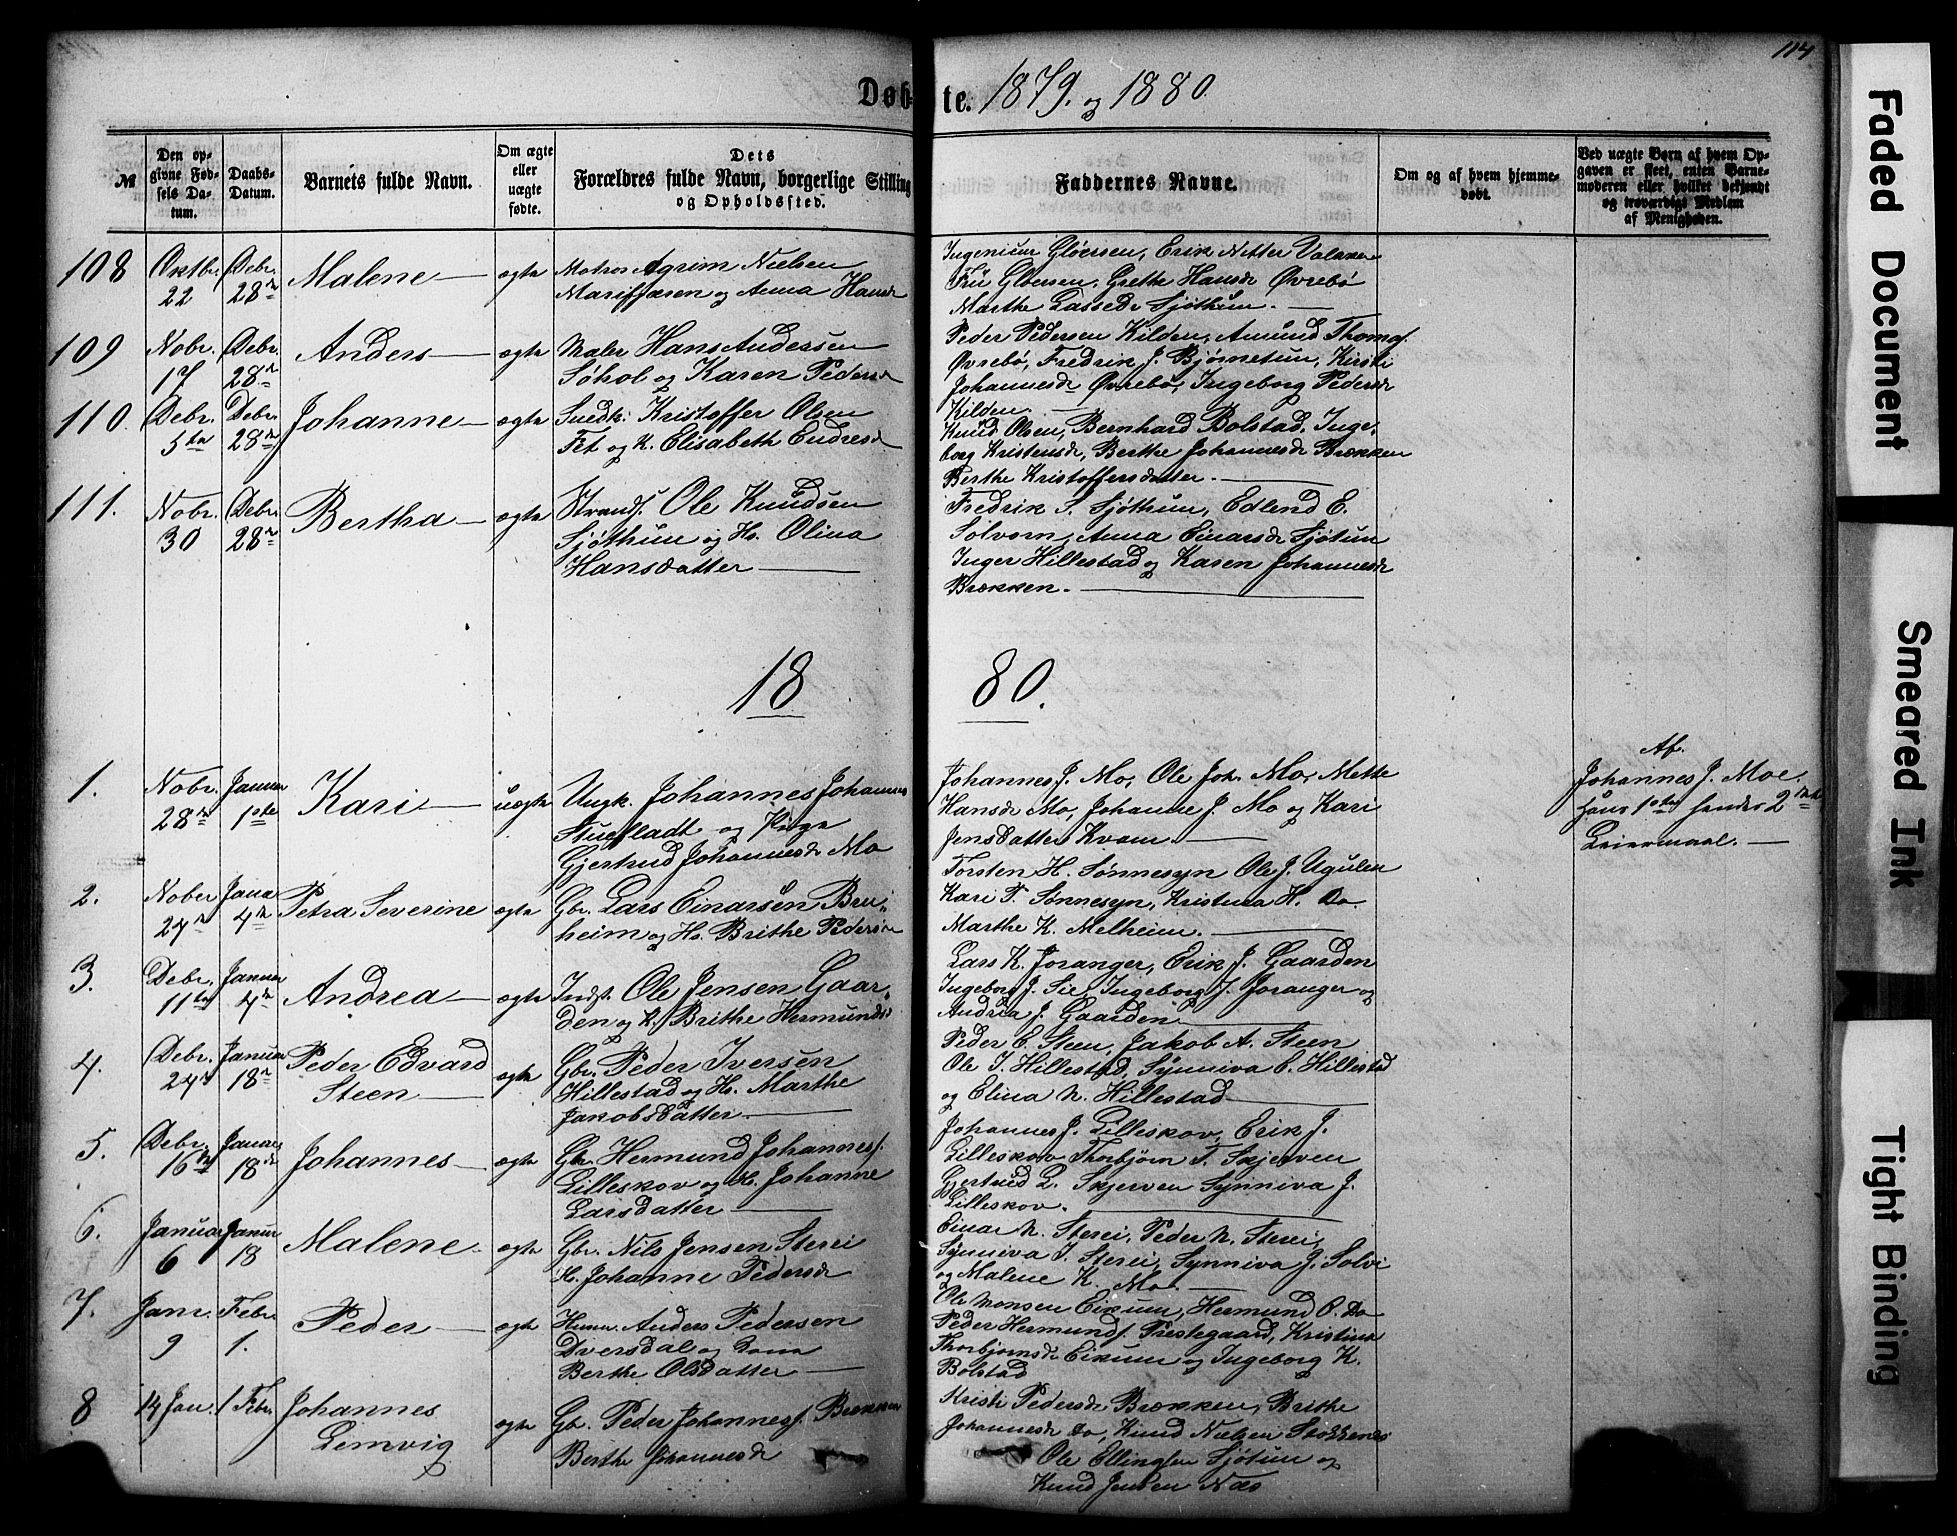 114
Døbte. 1879. og 1880
№
Den opgivne Fødsels Datum.
Daabs-Datum.
Barnets fulde Navn.
Om ægte eller uægte fødte.
Dets Forældres fulde Navn, borgerlige Stilling og Opholdssted.
Faddernes Navne.
Om og af hvem hjemmedøbt.
Ved uægte Børn af hvem Opgaven er skeet, enten Barnemoderen eller hvilket bekjendt og troværdigt Medlem af Menigheden.
108 Oktbr. 22 Debr. 28de Malene ægte
Matros Agrim Nielsen
og Anna Hansd
Ingenieur Gløersen, Erik Nitter
Frü Gløersen, Grethe Hansdr Øvrebø
Marthe Lassedr Sjøthun.
109 Nobr. 17 Debr. 28de Anders ægte
Maler Hans Andersen
Søhol og Karen Pedersd
Peder Pedersen Kilden, Amund Thomas.
Øvrebø, Fredrik J. Bjørnetun, Kirsti
Johannesdr Øvrebø, Ingeborg Pedersdr
Kilden.
110. Debr. 5te Debr. 28de Johanne ægte
Snedk. Kristoffer Olsen
Fet og K. Elisabeth Endresd
Knud Olsen, Bernhard Bolstad, Inge-
borg Kristensdr, Berthe Johannesdr Brækken
Berthe Kristoffersdatter.
111. Nobr. 30 Debr. 28de Bertha ægte
Strands. Ole Knudsen
Sjøthun og Hs. Olina
Hansdatter
Fredrik S. Sjøthun, Edlend E.
Solvorn, Anna Einarsdr Sjøtun
Inger Hillestad og Karen Johannesdr
Brækken.
1880.
1. Nobr. 28de Januar 1ste Kari uægte
Ungk. Johannes Johannes
og Pige
Gjertrud Johannesdr Mo
Johannes J. Mo, Ole Joh. Mo, Mette
Hansdr Mo, Johanne J. Mo og Kari
Jensdatter Kvam.
Af.
Johannes J. Moe.
Hans 1ste hendes 2det
Leiermaal.
2. Nober 24de Janua 4de Petra Severine ægte
Gbr. Lars Einarsen Bru-
heim og Hs. Brithe Pedersd
Torsten H. Sønnesyn Ole J. Ugulen
Kari T. Sønnesyn, Kristina H. Do.
Marthe K. Melheim.
3. Debr. 11te Januar 4de Andrea ægte
Indst. Ole Jensen Gaar-
den og K. Brithe Hermundsd
Lars K. Joranger, Erik J. Gaarden
Ingeborg J. Sie, Ingeborg J. Joranger og
Andrea J. Gaarden
4. Debr. 24de Januar 18de Peder Edvard
Steen ægte
Gbr. Peder Iversen
Hillestad og Hs. Marthe
Jakobsdatter
Peder E. Steen, Jakob A. Steen
Ole I. Hillestad, Synniva E. Hillestad
og Elina N. Hillestad
5. Debr. 16de Januar 18de Johannes ægte
Gbr. Hermund Johannes.
Lilleskov og K. Johanne
Larsdatter
Johannes J. Lilleskov, Erik J.
Lilleskov Thorbjørn T. Skjerven
Gjertrud L. Skjerven Synniva J.
Lilleskov.
6. Januar 6 Januar 18 Malene ægte
Gbr. Nils Jensen Sterei
K. Johanne Pedersdr
Einar N. Sterei, Peder N. Sterei,
Synniva I. Sterei, Synniva J. Solvi
og Malene K. Mo.
7. Janr. 9 Febr. 1. Peder ægte
Husm. Anders Pedersen
Dversdal og Kona
Berthe Olsdatter
Ole Monsen Eikum, Hermund O. Do
Peder Hermunds. Prestegaard, Kristina
Thorbjørnsdr Eikum og Ingeborg K.
Bolstad
8 14 Jan. 1 Febr. Johannes
Lemvig ægte
Gbr. Peder Johannes. Brækken
Berthe Johannesdr
Kristi Pedersdr Brækken, Brithe
Johannesdr do, Knud Nielsen Stokkenes
Ole Ellingsen Sjøtun og
Knud Jensen Næs
Faded Document
Smeared Ink
Tight Binding